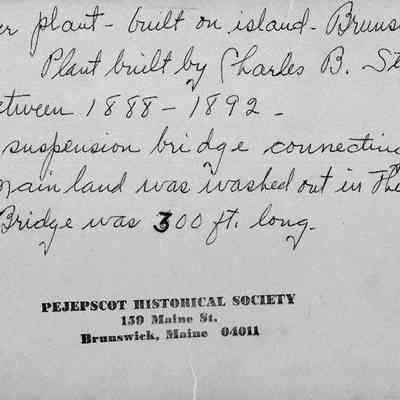 er plant - built on island - Bruns
Plant built by Charles B. St
etween 1888 - 1892 -
suspension bridge connecting
mainland was washed out in The
Bridge was 300 ft. long.
PEJEPSCOT HISTORICAL SOCIETY
159 Maine St.
Brunswick, Maine 04011